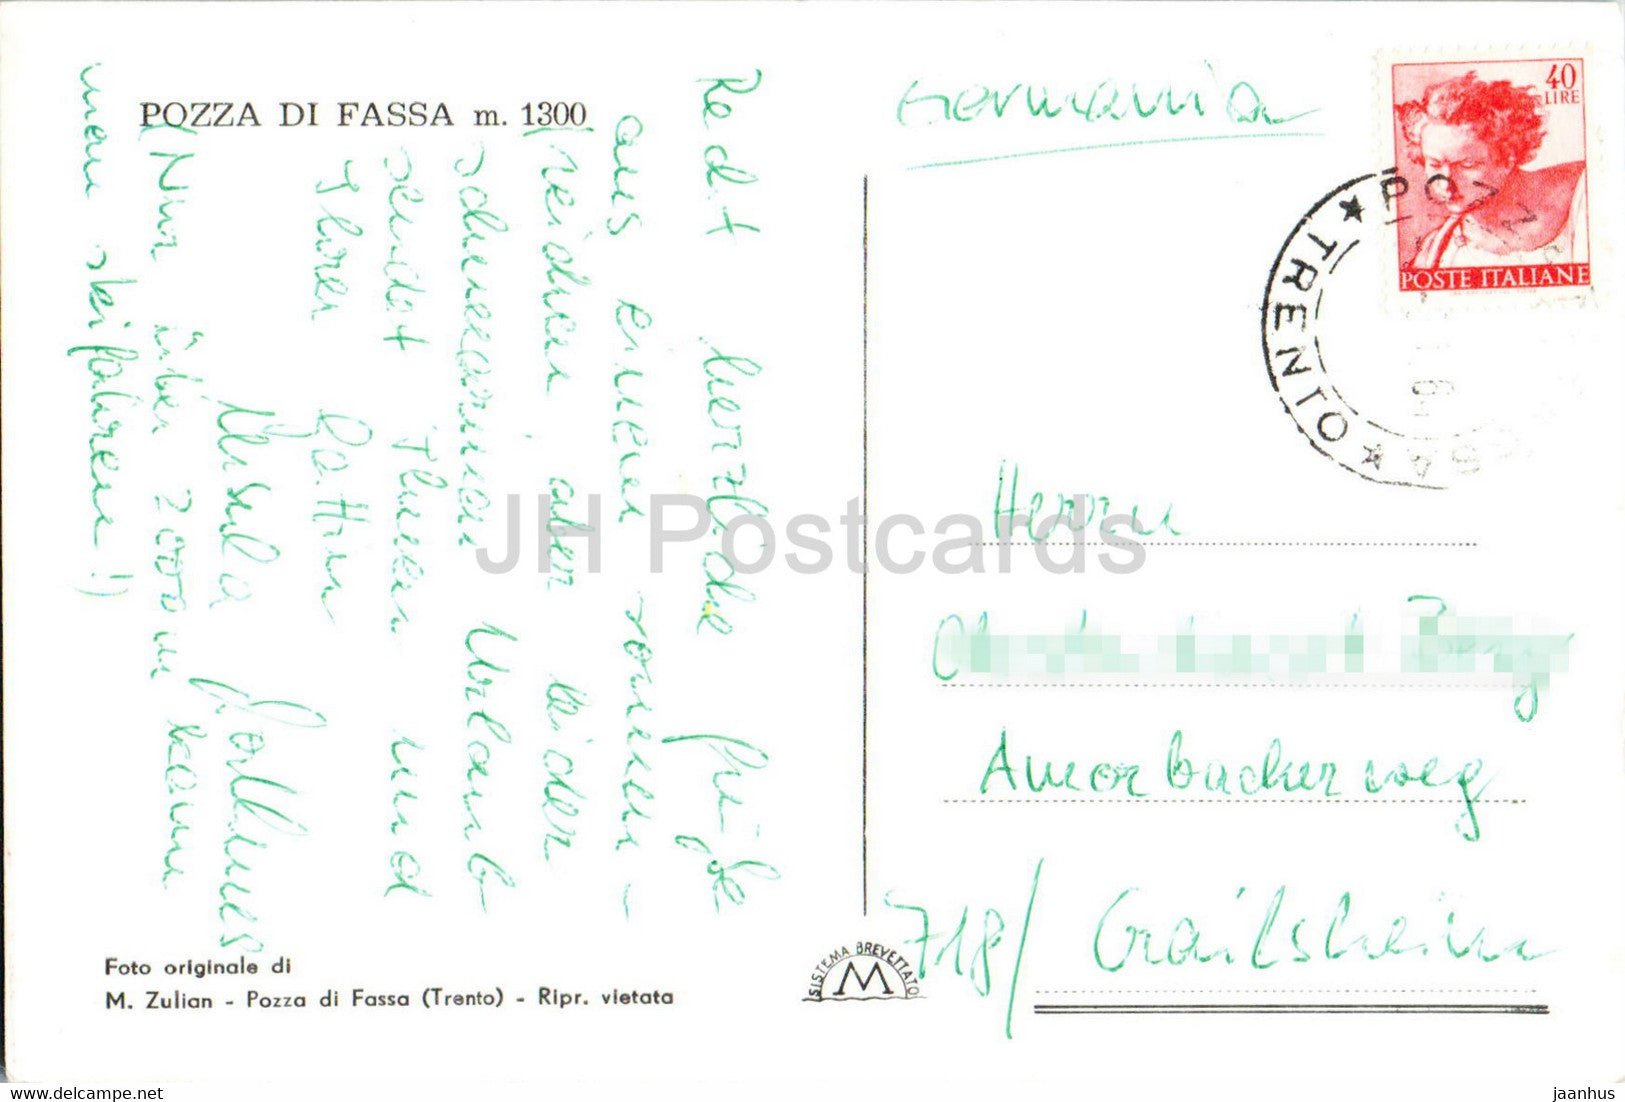 POZZA DI FASSA m. 1300
Recht herzliche Grüße
aus einem sonnen-
reichen aber leider
schneearmen Urlaub
sendet Ihnen und
Ihrer Gattin
Ursula
(Nur über 2000 m kann
man skifahren!)
Foto originale di
M. Zulian - Pozza di Fassa (Trento) - Ripr. vietata
SISTEMA BREVETTATO
M
Germania
40
LIRE
POSTE ITALIANE
POZZA
★ TRENTO ★
Herrn
Amorbacherweg
718/ Crailsheim
JH Postcards
hippostcard.com
jaanhus